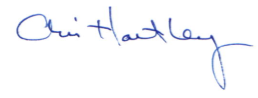 Chris Hartley